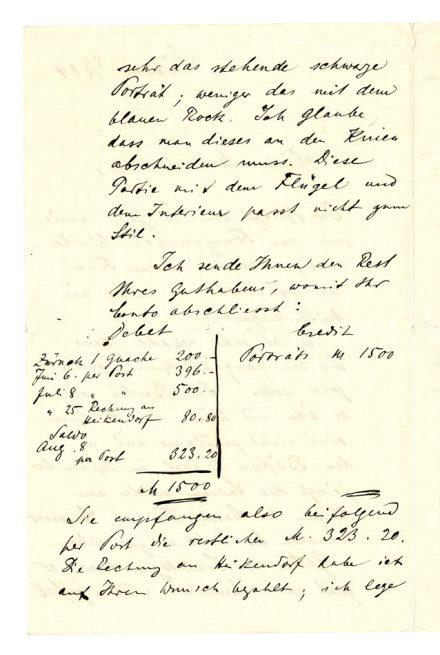 sehr das stehende schwarze
Porträt; weniger das mit dem
blauen Rock. Ich glaube,
dass man dieses an den Knien
abschneiden muss. Diese
Partie mit dem Flügel und
dem Interieur passt nicht zum
Stil.
Ich sende Ihnen den Rest
Ihres Guthabens, womit Ihr
Conto abschliesst:
Debet Credit
Zurück 1 Guache 200.- Porträts M 1500
Juni 6. per Post 396.-
Juli 8 " " 500.-
" 25 Rechnung an
Heikendorf 80.80
Saldo
Aug. 8
per Post 323.20
M 1500
Sie empfangen also beifolgend
per Post die restlichen M. 323.20.
Die Rechnung an Heikendorf habe ich
auf Ihren Wunsch bezahlt; ich lege